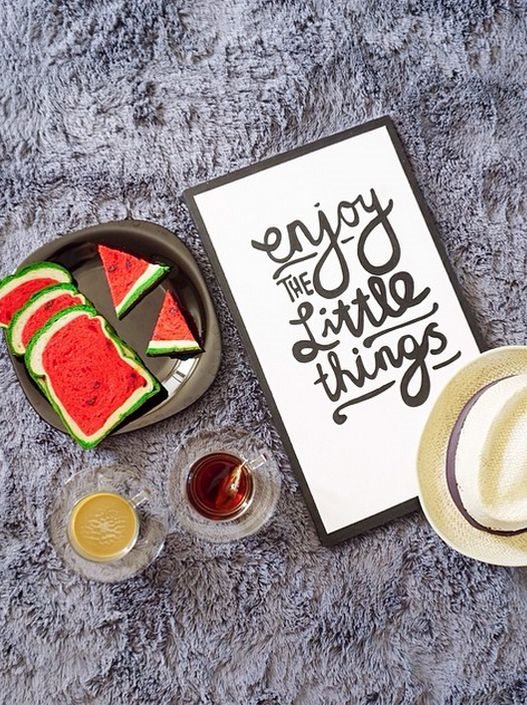 enjoy
THE
Little
things